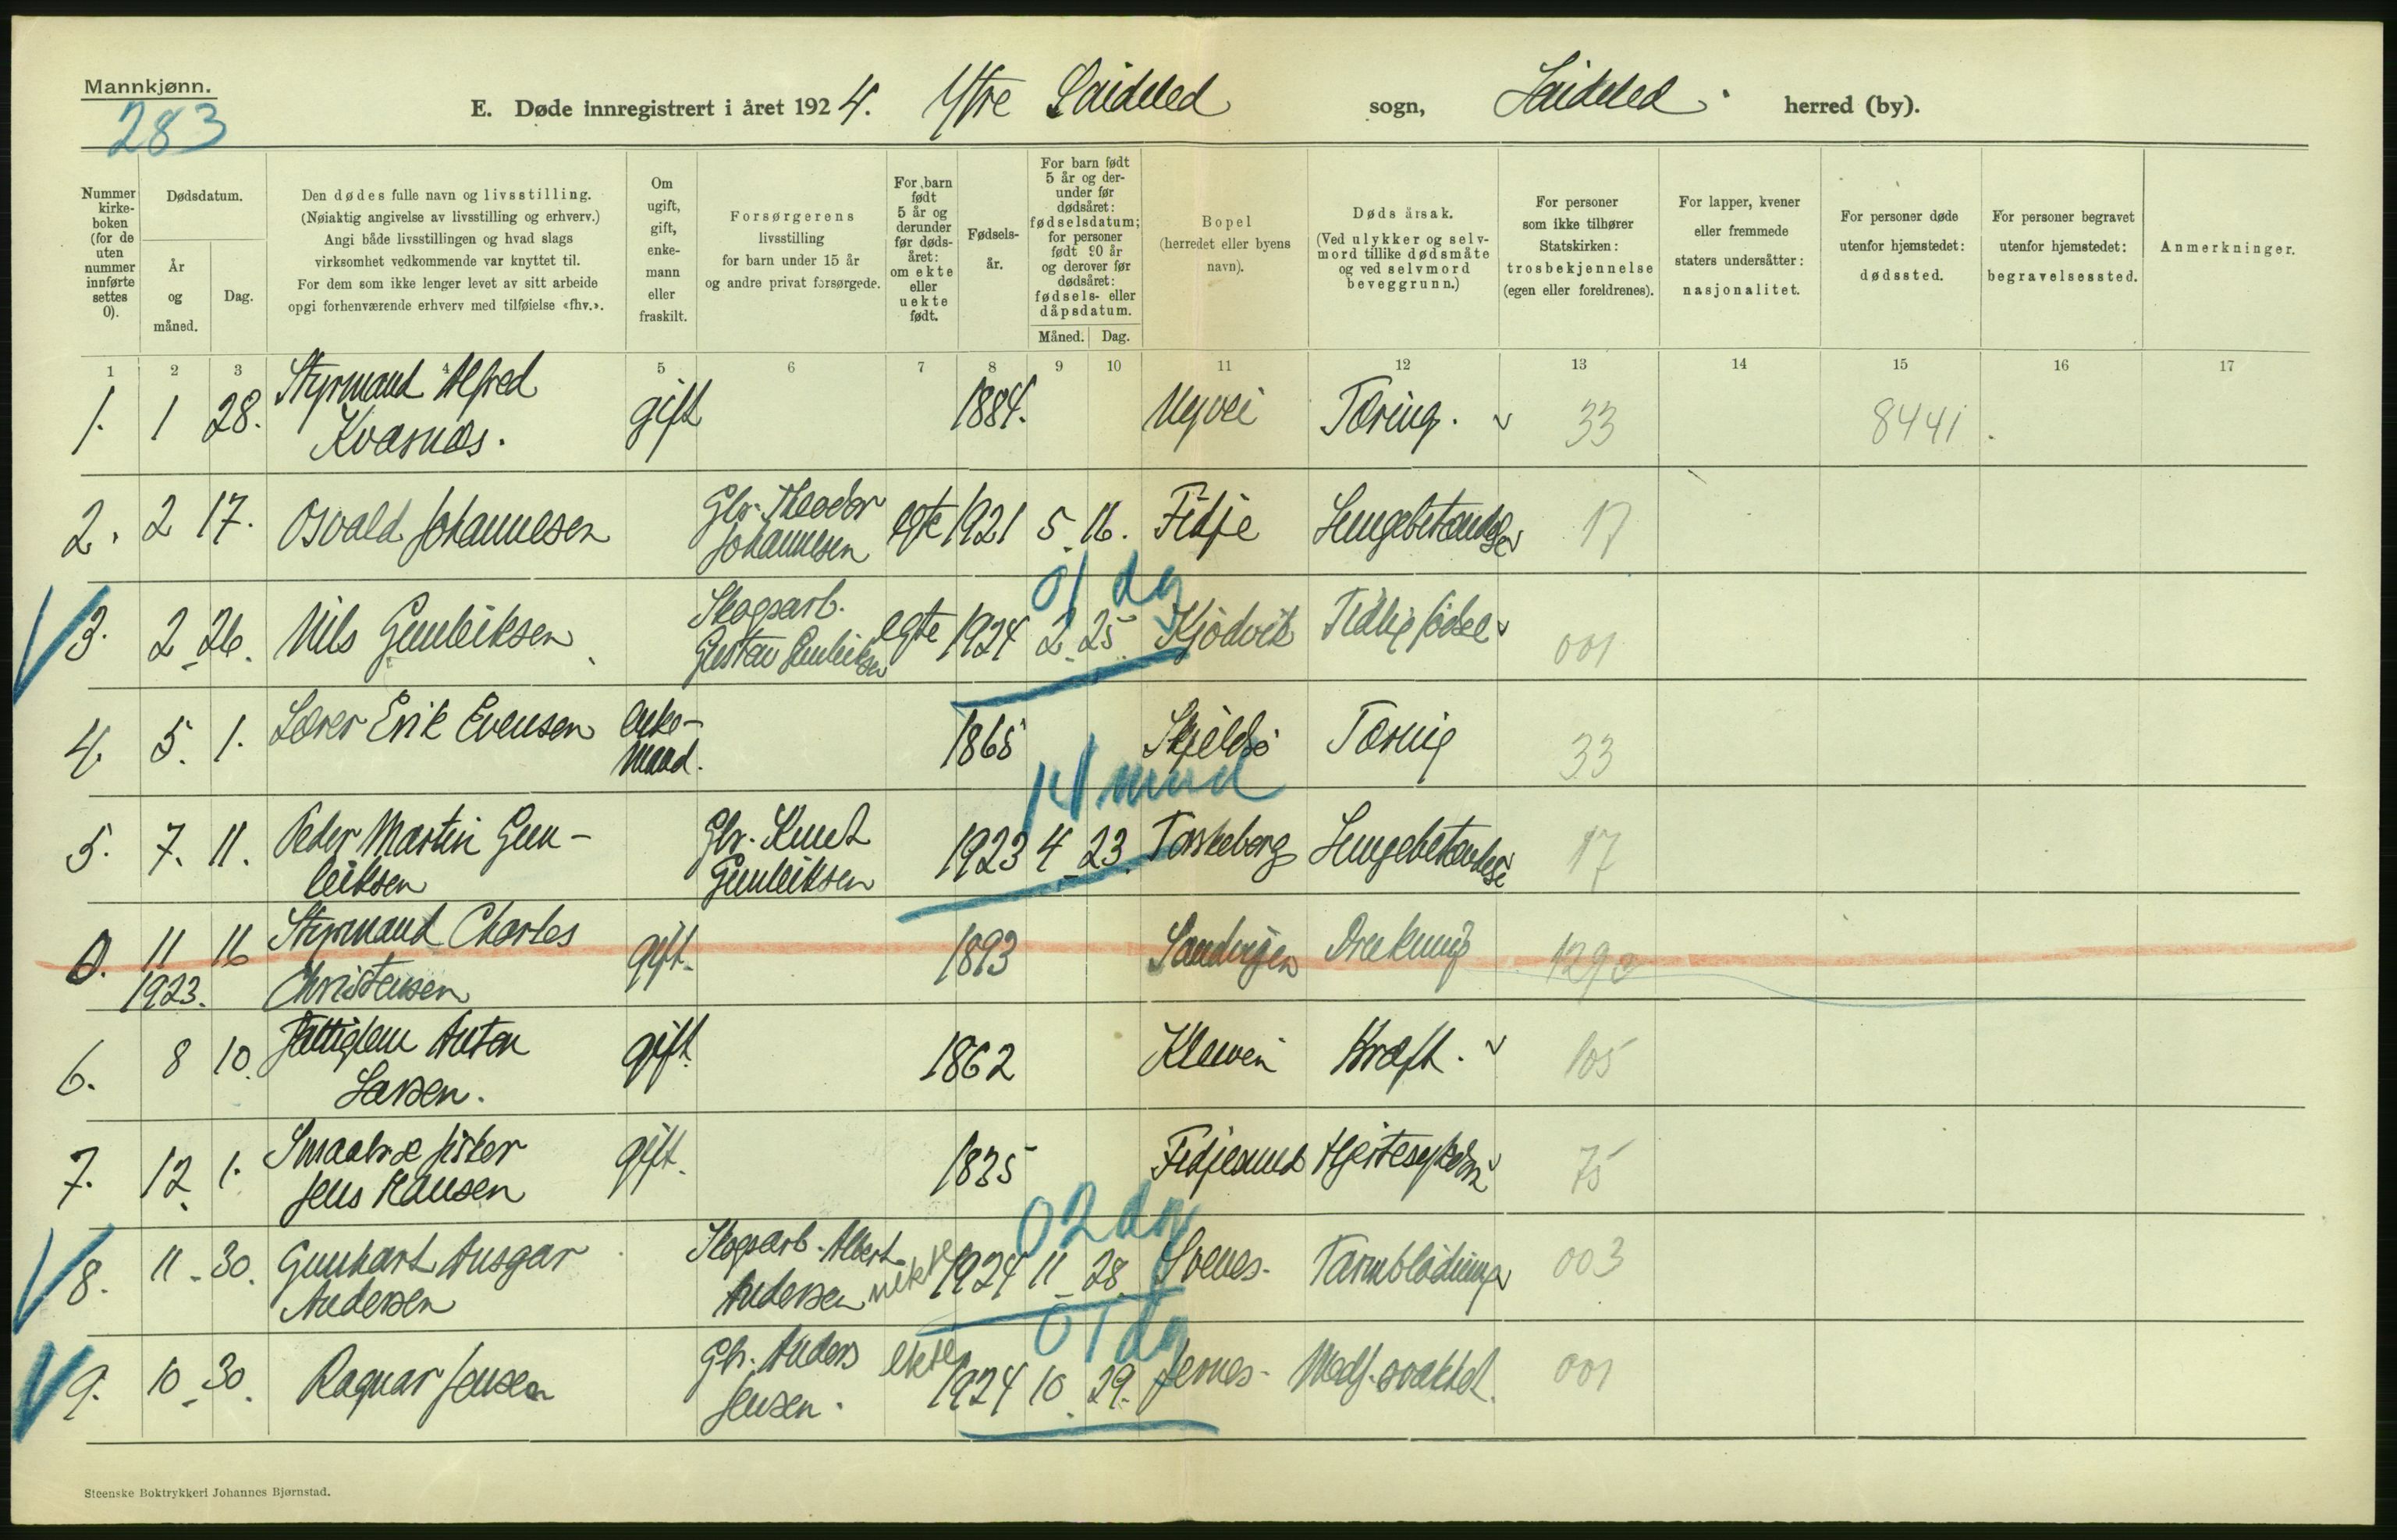 Mannkjønn.
283
E. Døde innregistrert i året 1924. Ytre Søideled sogn, Søideled. herred (by).
Nummer kirke-boken (for de uten nummer innførte settes 0).
Dødsdatum.
År og måned.
Dag.
Den dødes fulle navn og livsstilling.
(Nøiaktig angivelse av livsstilling og erhverv.)
Angi både livsstillingen og hvad slags
virksomhet vedkommende var knyttet til.
For dem som ikke lenger levet av sitt arbeide
opgi forhenværende erhverv med tilføielse «fhv.».
Om ugift, gift, enke-mann eller fraskilt.
Forsørgerens
livsstilling
for barn under 15 år
og andre privat forsørgede.
For barn født 5 år og derunder før døds-året: om ekte eller uekte født.
Fødsels-år.
For barn født 5 år og der-under før dødsåret: fødselsdatum; for personer født 90 år og derover før dødsåret: fødsels- eller dåpsdatum.
Måned. Dag.
Bopel
(herredet eller byens
navn).
Dødsårsak.
(Ved ulykker og selv-
mord tillike dødsmåte
og ved selvmord
beveggrunn.)
For personer
som ikke tilhører
Statskirken:
trosbekjennelse
(egen eller foreldrenes).
For lapper, kvener
eller fremmede
staters undersåtter:
nasjonalitet.
For personer døde
utenfor hjemstedet:
dødssted.
For personer begravet
utenfor hjemstedet:
begravelsessted.
Anmerkninger.
1 2 3 4 5 6 7 8 9 10 11 12 13 14 15 16 17
1. 1 28. Styrmand Alfred Kvasnæs. gift 1884. Nyvei Tæring. 33 8441
2. 2 17. Osvald Johannesen Gbr. Theodor Johannesen egte 1921 5. 16. Fidje Lungebetændelse 17
01 dg
3. 2 26. Nils Gunleiksen Skogsarb. Gustav Gunleiksen egte 1924 2. 25. Kjødvik Tidlig fødsel 001
4. 5. 1. Lærer Erik Evensen enke-mand. 1865 Skjeldsø Tæring 33
14 mnd
5. 7. 11. Peder Martin Gun-leiksen Gbr. Knut Gunleiksen 1923 4. 23. Torskeberg Lungebetændelse 17
0. 11 1923. 16 Styrmand Charles Christensen gift. 1893 Sandvigen Drukning 129
6. 8 10. Fattiglem Anton Larsen. gift. 1862 Kleven Kræft. 105
7. 12. 1. Smaabr. & fisker Jens Hansen gift. 1835 Fidjesund Hjertesykdom 75
02 dg
8. 11. 30. Gunhart Ansgar Andersen Skogsarb. Albert Andersen ekte 1924 11. 28. Svenes. Tarmblødning 003
01 dg
9. 10. 30. Ragnar Jensen Gbr. Anders Jensen. ekte 1924 10. 29. Jernes. Medf. svakhet. 001
Steenske Boktrykkeri Johannes Bjørnstad.